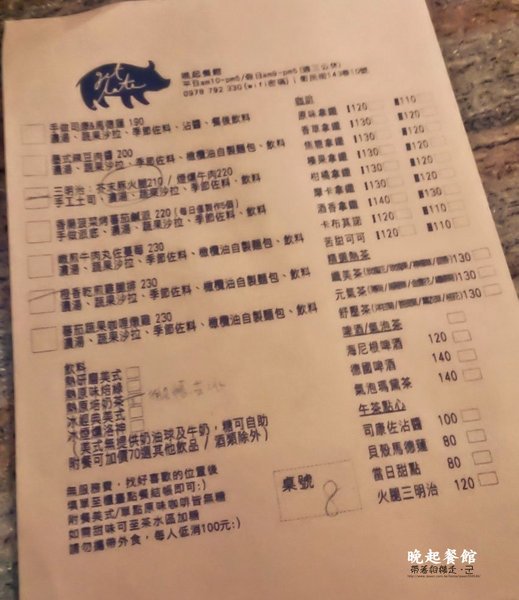 get
late
晚起餐館
平日am10-pm5/假日am9-pm5(週三公休)
0978 792 330(wifi密碼) | 衛民街143巷10號
手做司康&馬德蓮 190
濃湯、蔬果沙拉、季節佐料、沾醬、餐後飲料
墨式辣豆肉醬 200
濃湯、蔬果沙拉、季節佐料、橄欖油自製麵包、飲料
三明治：芥末豚火腿210 / 煙燻牛肉220
手工土司、濃湯、蔬果沙拉、季節佐料、飲料
香腸菠菜烤蕃茄鹹派 220 (每日僅製作5個)
手做派底、濃湯、蔬果沙拉、季節佐料、飲料
嫩煎牛肉丸佐蕃茄 230
濃湯、蔬果沙拉、季節佐料、橄欖油自製麵包、飲料
橙香乾煎雞腿排 230
濃湯、蔬果沙拉、季節佐料、橄欖油自製麵包、飲料
蕃茄蔬果咖哩燉雞 230
濃湯、蔬果沙拉、季節佐料、橄欖油自製麵包、飲料
飲料
熱研磨美式
熱原味焙綠
熱原焙奶茶
冰經典美式
冰煙燻洛神
(美式無提供奶油球及牛奶，糖可自助
附餐可加價70選其他飲品 / 酒類除外)
無服務費，找好喜歡的位置後
填單至櫃臺點餐結帳即可:)
附餐美式/單點原味咖啡皆無糖
如需甜味可至茶水區加糖
請勿攜帶外食，每人低消100元:)
咖啡
原味拿鐵 120 110
香草拿鐵 130 120
焦糖拿鐵 130 120
榛果拿鐵 130 120
柑橘拿鐵 130 120
摩卡拿鐵 130 120
酒香拿鐵 130 120
卡布其諾 120 110
苦甜可可 120 110
纖美茶 130
元氣茶 130
舒壓茶 130
啤酒/氣泡茶
海尼根啤酒 120
德國啤酒 140
氣泡瑪黛茶 140
午茶點心
司康佐沾醬 100
貝殼馬德蓮 80
當日甜點 80
火腿三明治 120
桌號
8
晚起餐館